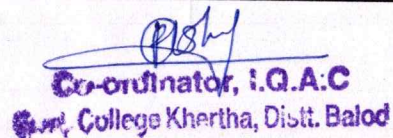 Co-ordinator, I.Q.A.C
Govt. College Khertha, Distt. Balod